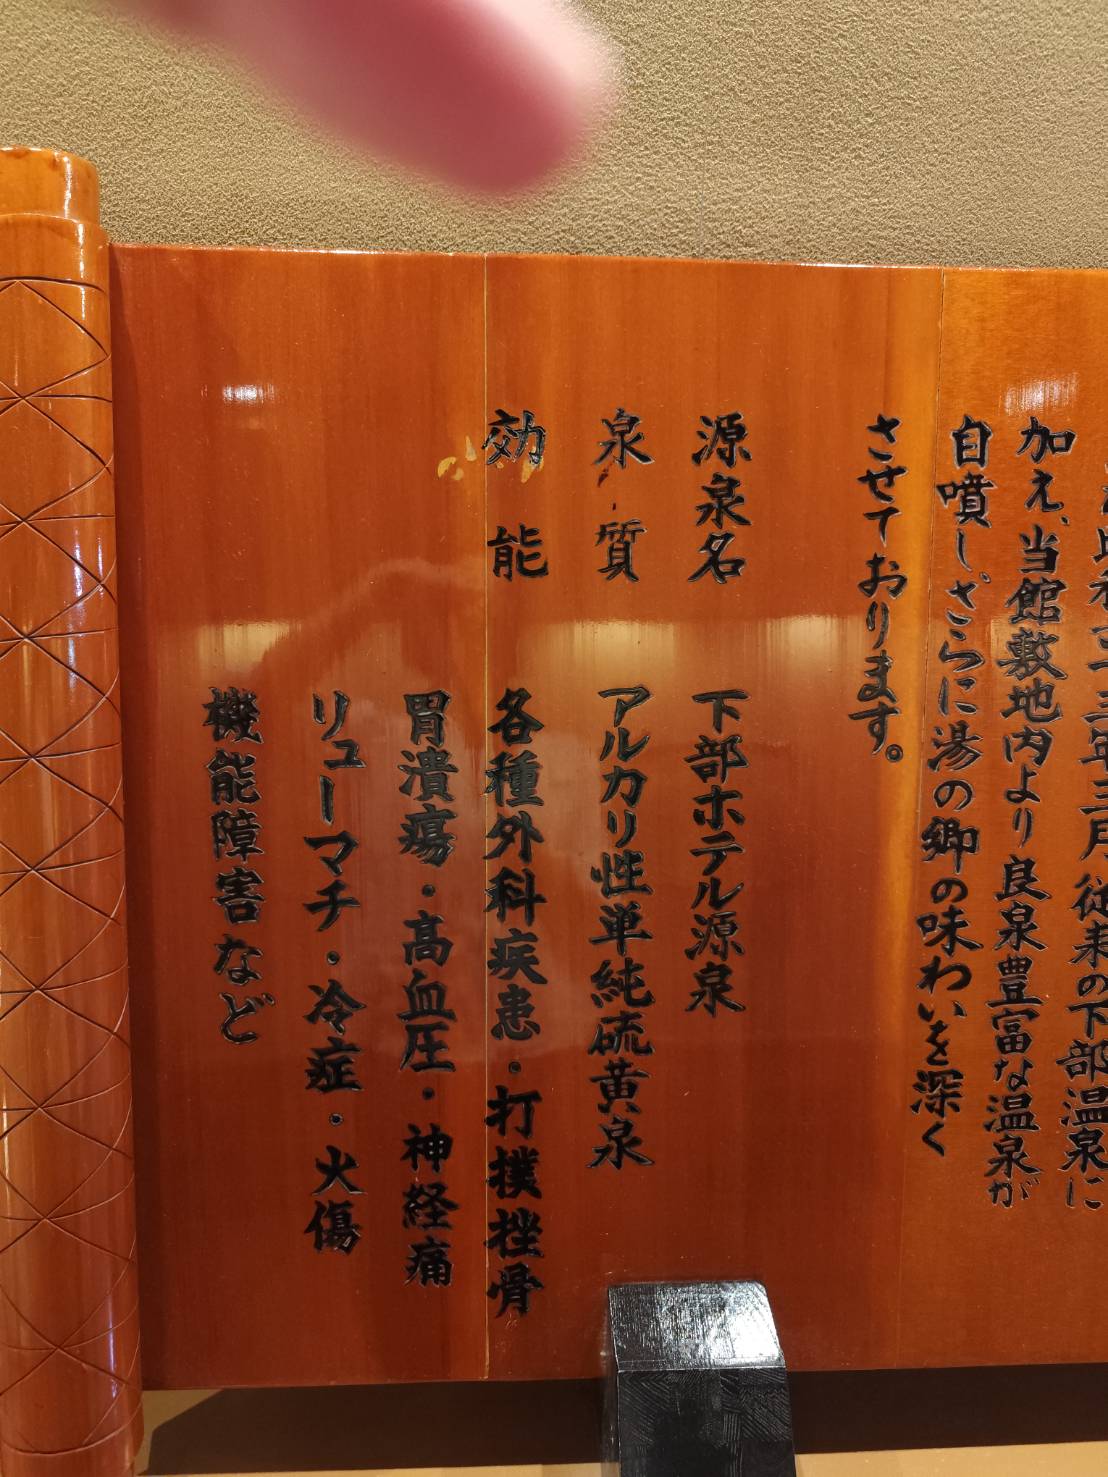 年三月、従来の下部温泉に
加え、当館敷地内より良泉豊富な温泉が
自噴し、さらに湯の郷の味わいを深く
させております。
源泉名　下部ホテル源泉
泉質　アルカリ性単純硫黄泉
効能　各種外科疾患・打撲挫骨
胃潰瘍・高血圧・神経痛
リューマチ・冷症・火傷
機能障害など